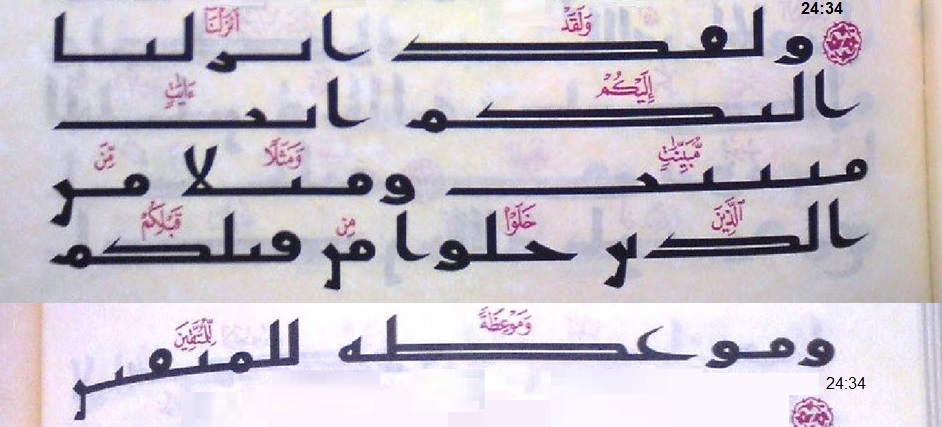 24:34
وَلَقَدْ أَنزَلْنَا
ولقد انزلنا
إِلَيْكُمْ ءَايَٰتٍ
اليكم ايت
مُّبَيِّنَٰتٍ وَمَثَلًا مِّنَ
مبينت ومثلا من
ٱلَّذِينَ خَلَوْا۟ مِن قَبْلِكُمْ
الذين خلوا من قبلكم
وَمَوْعِظَةً لِّلْمُتَّقِينَ
وموعظه للمتقين
24:34